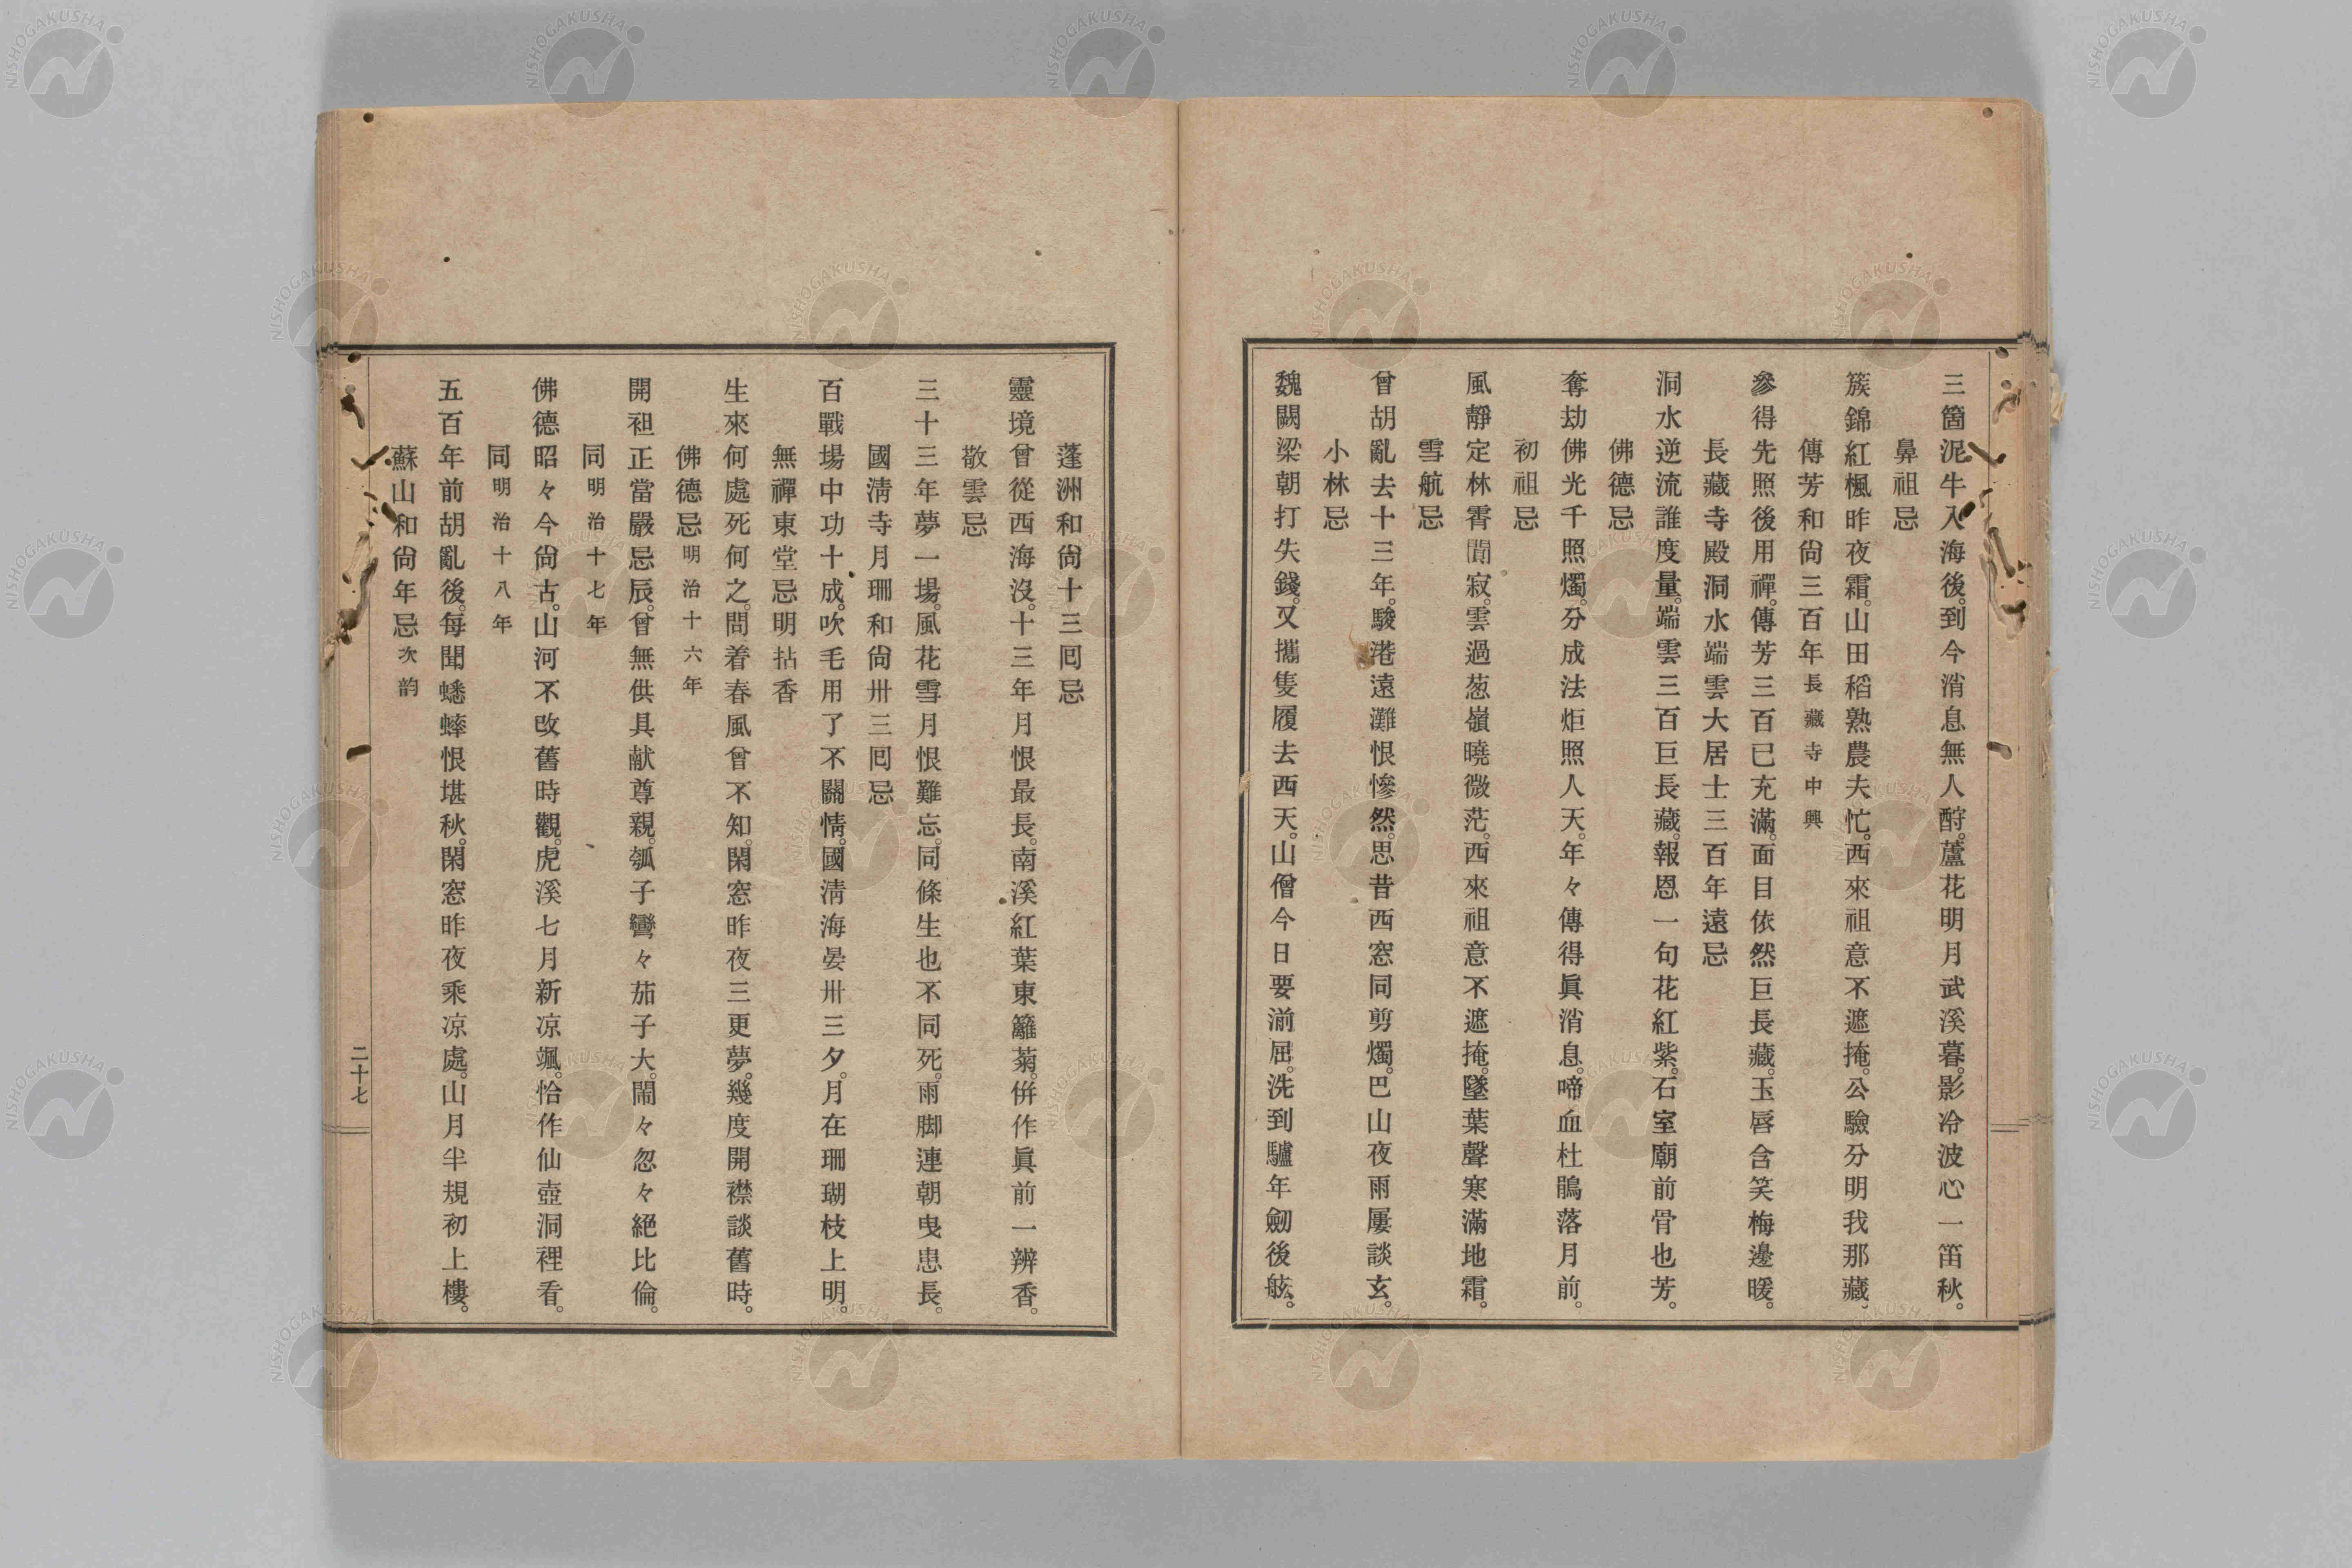 三箇泥牛入海後。到今消息無人酹。蘆花明月武溪暮。影冷波心一笛秋。
鼻祖忌
簇錦紅楓昨夜霜。山田稻熟農夫忙。西來祖意不遮掩。公驗分明我那藏、
傳芳和尙三百年長藏寺中興
參得先照後用禪。傳芳三百已充滿。面目依然巨長藏。玉唇含笑梅邊暖。
長藏寺殿洞水端雲大居士三百年遠忌
洞水逆流誰度量。端雲三百巨長藏。報恩一句花紅紫。石室廟前骨也芳。
佛德忌
奪劫佛光千照燭。分成法炬照人天。年々傳得眞消息。啼血杜鵑落月前。
初祖忌
風靜定林霄闃寂。雲過葱嶺曉微茫。西來祖意不遮掩。墜葉聲寒滿地霜。
雪航忌
曾胡亂去十三年。駿港遠灘恨慘然。思昔西窓同剪燭。巴山夜雨屢談玄。
小林忌
魏闕梁朝打失錢。又攜隻履去西天。山僧今日要湔屈。洗到驢年劒後舷。
蓬洲和尙十三囘忌
靈境曾從西海沒。十三年月恨最長。南溪紅葉東籬菊。倂作眞前一辨香。
敬雲忌
三十三年夢一場。風花雪月恨難忘。同條生也不同死。雨脚連朝曳恚長。
國淸寺月珊和尙卅三囘忌
百戰場中功十成。吹毛用了不關情。國淸海晏卅三夕。月在珊瑚枝上明。
無禪東堂忌明拈香
生來何處死何之。問着春風曾不知。閑窓昨夜三更夢。幾度開襟談舊時。
佛德忌明治十六年
開祖正當嚴忌辰。曾無供具献尊親。瓠子彎々茄子大。鬧々忽々絕比倫。
同明治十七年
佛德昭々今尙古。山河不改舊時觀。虎溪七月新凉颯。恰作仙壺洞裡看。
同明治十八年
五百年前胡亂後。每聞蟋蟀恨堪秋。閑窓昨夜乘凉處。山月半規初上樓。
蘇山和尙年忌次韵
二十七
NISHOGAKUSHA